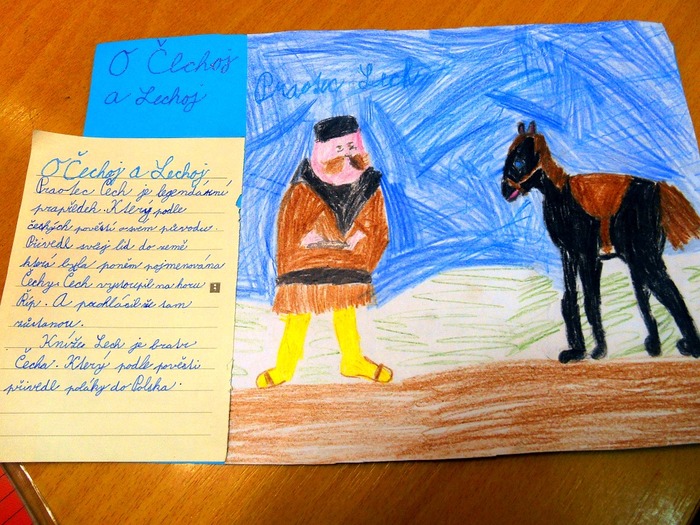 O Čechoj
a Lechoj
Praotec Lech
O Čechoj a Lechoj
Praotec Čech je legendární
prapředek. Který podle
českých pověstí
Přivedl svůj lid do země
která byla poněm pojmenována
Čechy. Čech vystoupil na horu
Říp. A že tam
zůstanou.
Kníže Lech je bratr
Čecha. Který podle pověsti
přivedl poláky do Polska.